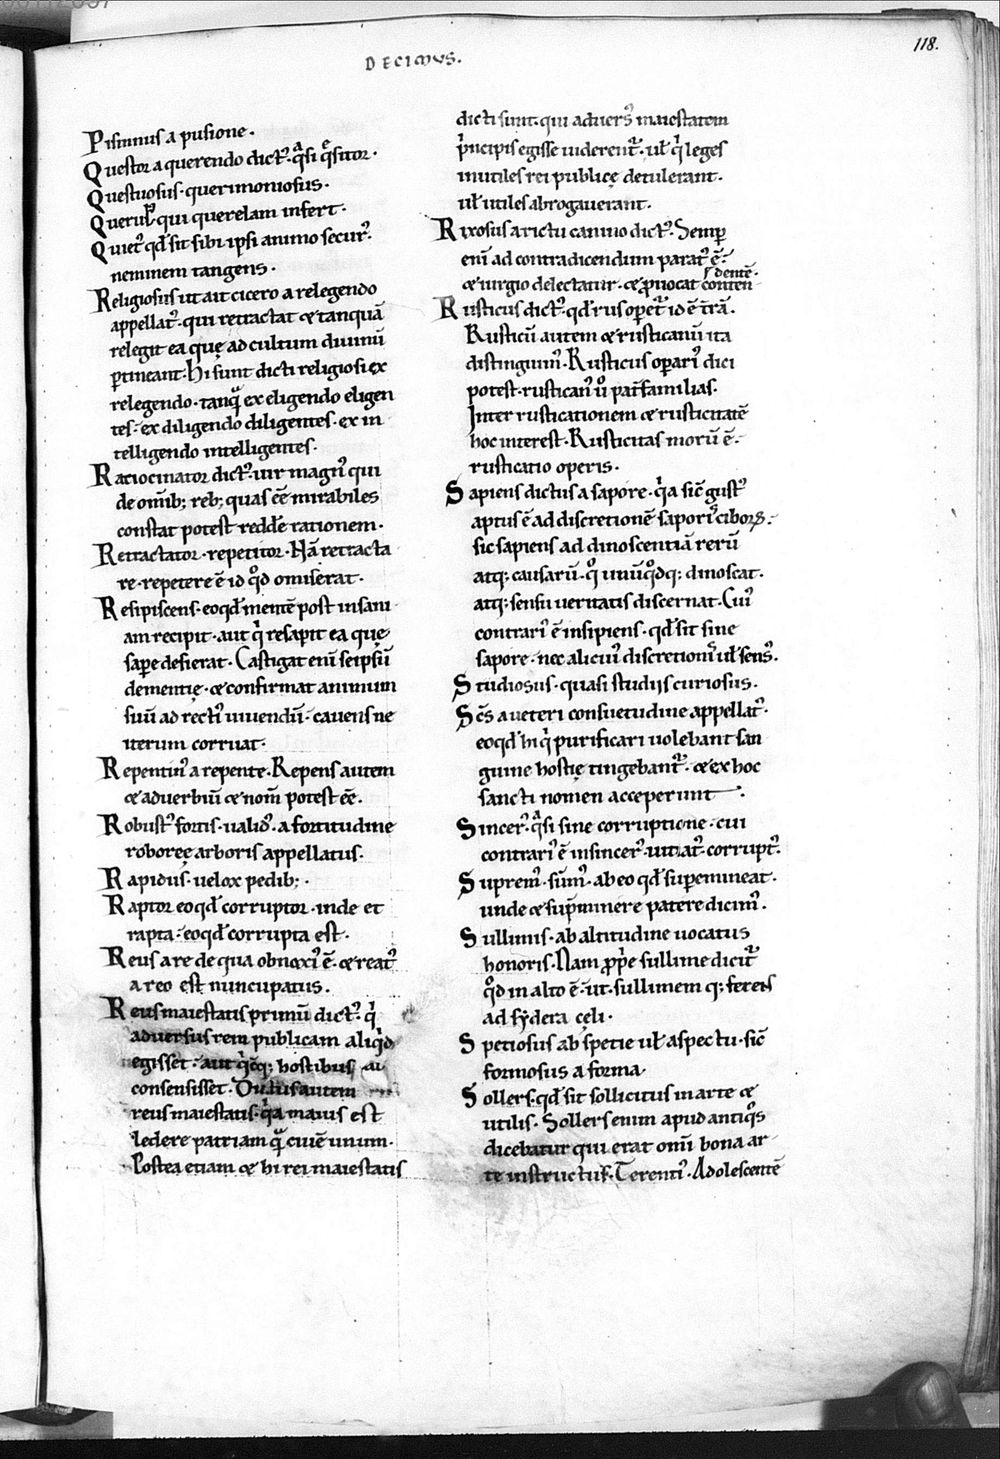 118.
DECIMUS.
Pisinnus a pusione.
Questor a querendo dict᷒. q̄si q̄sitor.
Questuosus. querimoniosus.
Querul᷒ qui querelam infert.
Quiet᷒ qd̄ sit sibi ipsi animo secur᷒.
neminem tangens.
Religiosus ut ait cicero a relegendo
appellat᷒. qui retractat & tanquā
relegit ea quę ad cultum diuinū
ꝑtineant. Hi sunt dicti religiosi ex
relegendo. tanq̄ ex eligendo eligen
tes. ex diligendo diligentes. ex in
telligendo intelligentes.
Ratiocinator dict᷒. uir magn᷒ qui
de omīb; reb; quas eē mirabiles
constat potest reddē rationem.
Retractator. repetitor. Nā retracta
re. repetere ē id qd̄ omiserat.
Resipiscens. eoqd̄ mentē post insani
am recipit. aut q̄ resapit ea quę
sapere desierat. Castigat enī seipsū
dementię. & confirmat animum
suū ad recti᷒ uiuendū. cauens ne
iterum corruat.
Repentin᷒ a repente. Repens autem
& aduerbiū & nom̄ potest eē.
Robust᷒ fortis. ualid᷒. a fortitudine
roboreę arboris appellatus.
Rapidus. uelox pedib;.
Raptor eoqd̄ corruptor. inde et
rapta. eoqd̄ corrupta est.
Reus a re de qua obnoxi᷒ ē. & reat᷒
a reo est nuncupatus.
Reus maiestatis primū dict᷒. q̄
aduersus rem publicam aliqd̄
egisset. aut q̄cq; hostibus
consensisset. Dictus autem
reus maiestatis. q̄a maius est
ledere patriam q̄ ciuē unum.
Postea etiam & hi rei maiestatis
dicti sunt. qui aduers᷒ maiestatem
p̄ncipis egisse uiderent᷒. ul̄ q̄ leges
inutiles rei publicę detulerant.
ul̄ utiles abrogauerant.
Rixosus a rictu canino dict᷒. Semꝑ
enī ad contradicendum parat᷒ ē.
& iurgio delectatur. & ꝓuocat conten
dentē.
Rusticus dict᷒. qd̄ rus operet᷒ id ē trā.
Rusticū autem & rusticanū ita
distinguim᷒. Rusticus operari dici
potest. rustican᷒ u᷒ patfamilias.
Inter rusticationem & rusticitatē
hoc interest. Rusticitas morū ē.
rusticatio operis.
Sapiens dictus a sapore. q̄a sic̄ gust᷒
aptus ē ad discretionē saporū ciboꝝ.
sic sapiens ad dinoscentiā rerū
atq; causarū. qd̄ unūqd̄q; dinoscat.
atq; sensu ueritatis discernat. Cui᷒
contrari᷒ ē insipiens. qd̄ sit sine
sapore. nec alicui᷒ discretionis ul̄ sens᷒.
Studiosus. quasi studijs curiosus.
Sc̄s a ueteri consuetudine appellat᷒.
eoqd̄ hi q̄ purificari uolebant san
guine hostię tingebant᷒. & ex hoc
sancti nomen acceperunt.
Sincer᷒. q̄si sine corruptione. cui
contrari᷒ ē insincer᷒. uitiat᷒. corrupt᷒.
Suprem᷒. sūm᷒. ab eo qd̄ supemineat.
unde & sup̄minere patere dicim᷒.
Sullimis. ab altitudine uocatus
honoris. Nam ꝓpe sullime dicit᷒
qd̄ in alto ē. ut. sullimem q; feres
ad sydera cęli.
Spetiosus ab spetie ul̄ aspectu. sic̄
formosus a forma.
Sollers. qd̄ sit sollicitus in arte &
utilis. Sollers enim apud antiqs
dicebatur qui erat omī bona ar
te instructus. Terenti᷒. Adolescentē